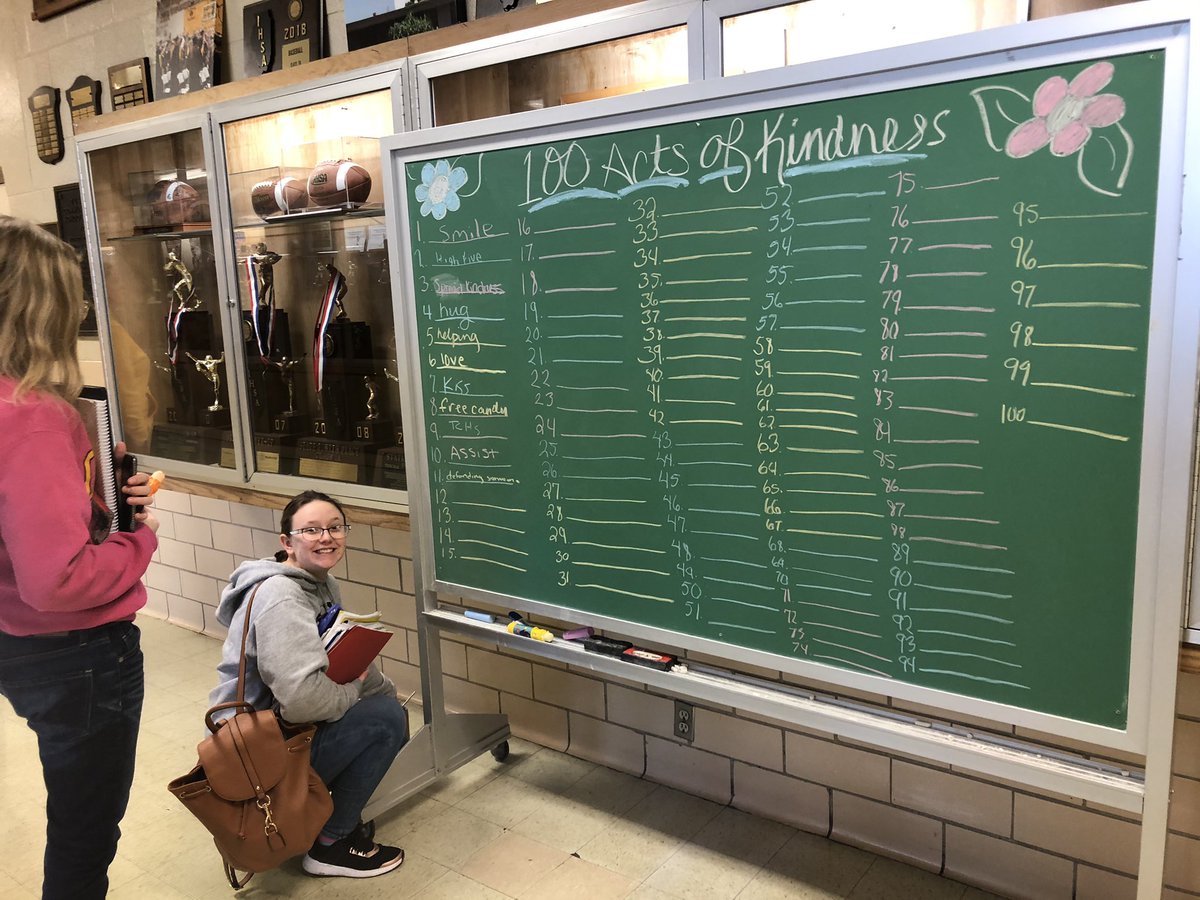 IHSA
2018
BASEBALL
100 Acts of Kindness
1. Smile
2. High five
3. Spread Kindness
4. hug
5. helping
6. love
7. KKs
8. free candy
9. TCHs
10. Assist
11. defending someone
12.
13.
14.
15.
16.
17.
18.
19.
20.
21
22
23
24
25.
26.
27.
28
29
30
31
32.
33
34.
35
36
37.
38.
39
40
41.
42
43
44.
45.
46.
47.
48.
49.
50
51
52
53
54
55
56
57.
58
59.
60
61.
62.
63
64.
65.
66
67.
68.
69.
70
71
72
73
74
75.
76
77
78
79
80
81
82
83
84
85
86
87
88
89
90
91
92
93
94
95
96
97
98
99
100
07
08
20